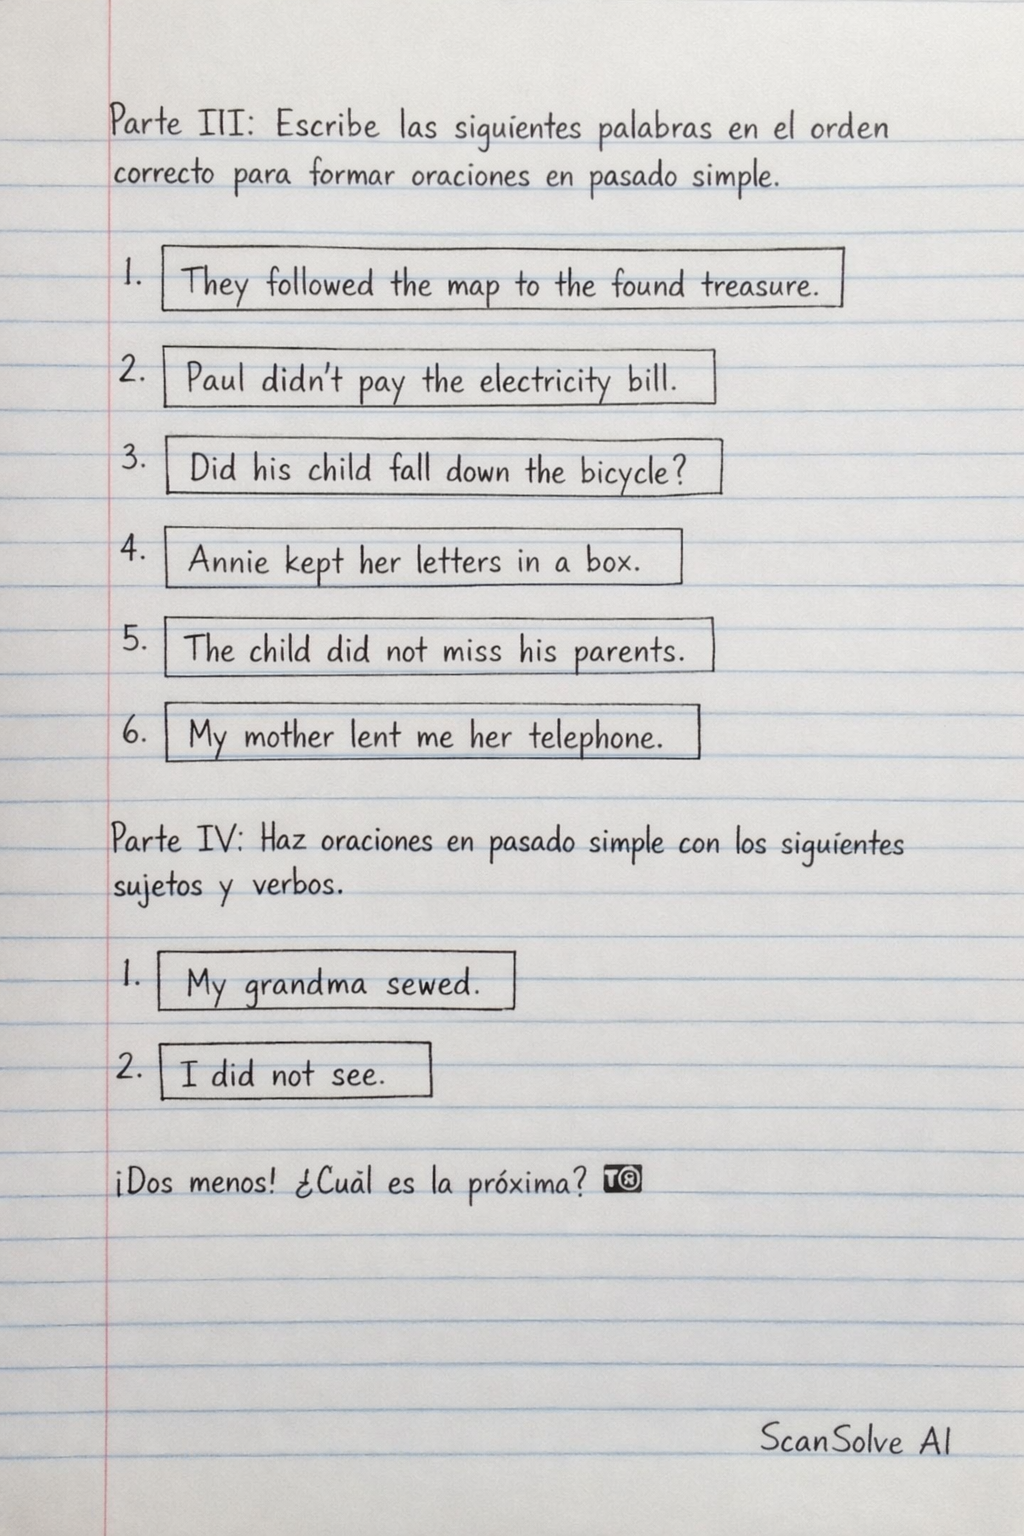 Parte III: Escribe las siguientes palabras en el orden
correcto para formar oraciones en pasado simple.
1. They followed the map to the found treasure.
2. Paul didn't pay the electricity bill.
3. Did his child fall down the bicycle?
4. Annie kept her letters in a box.
5. The child did not miss his parents.
6. My mother lent me her telephone.
Parte IV: Haz oraciones en pasado simple con los siguientes
sujetos y verbos.
1. My grandma sewed.
2. I did not see.
¡Dos menos! ¿Cuál es la próxima?
ScanSolve AI